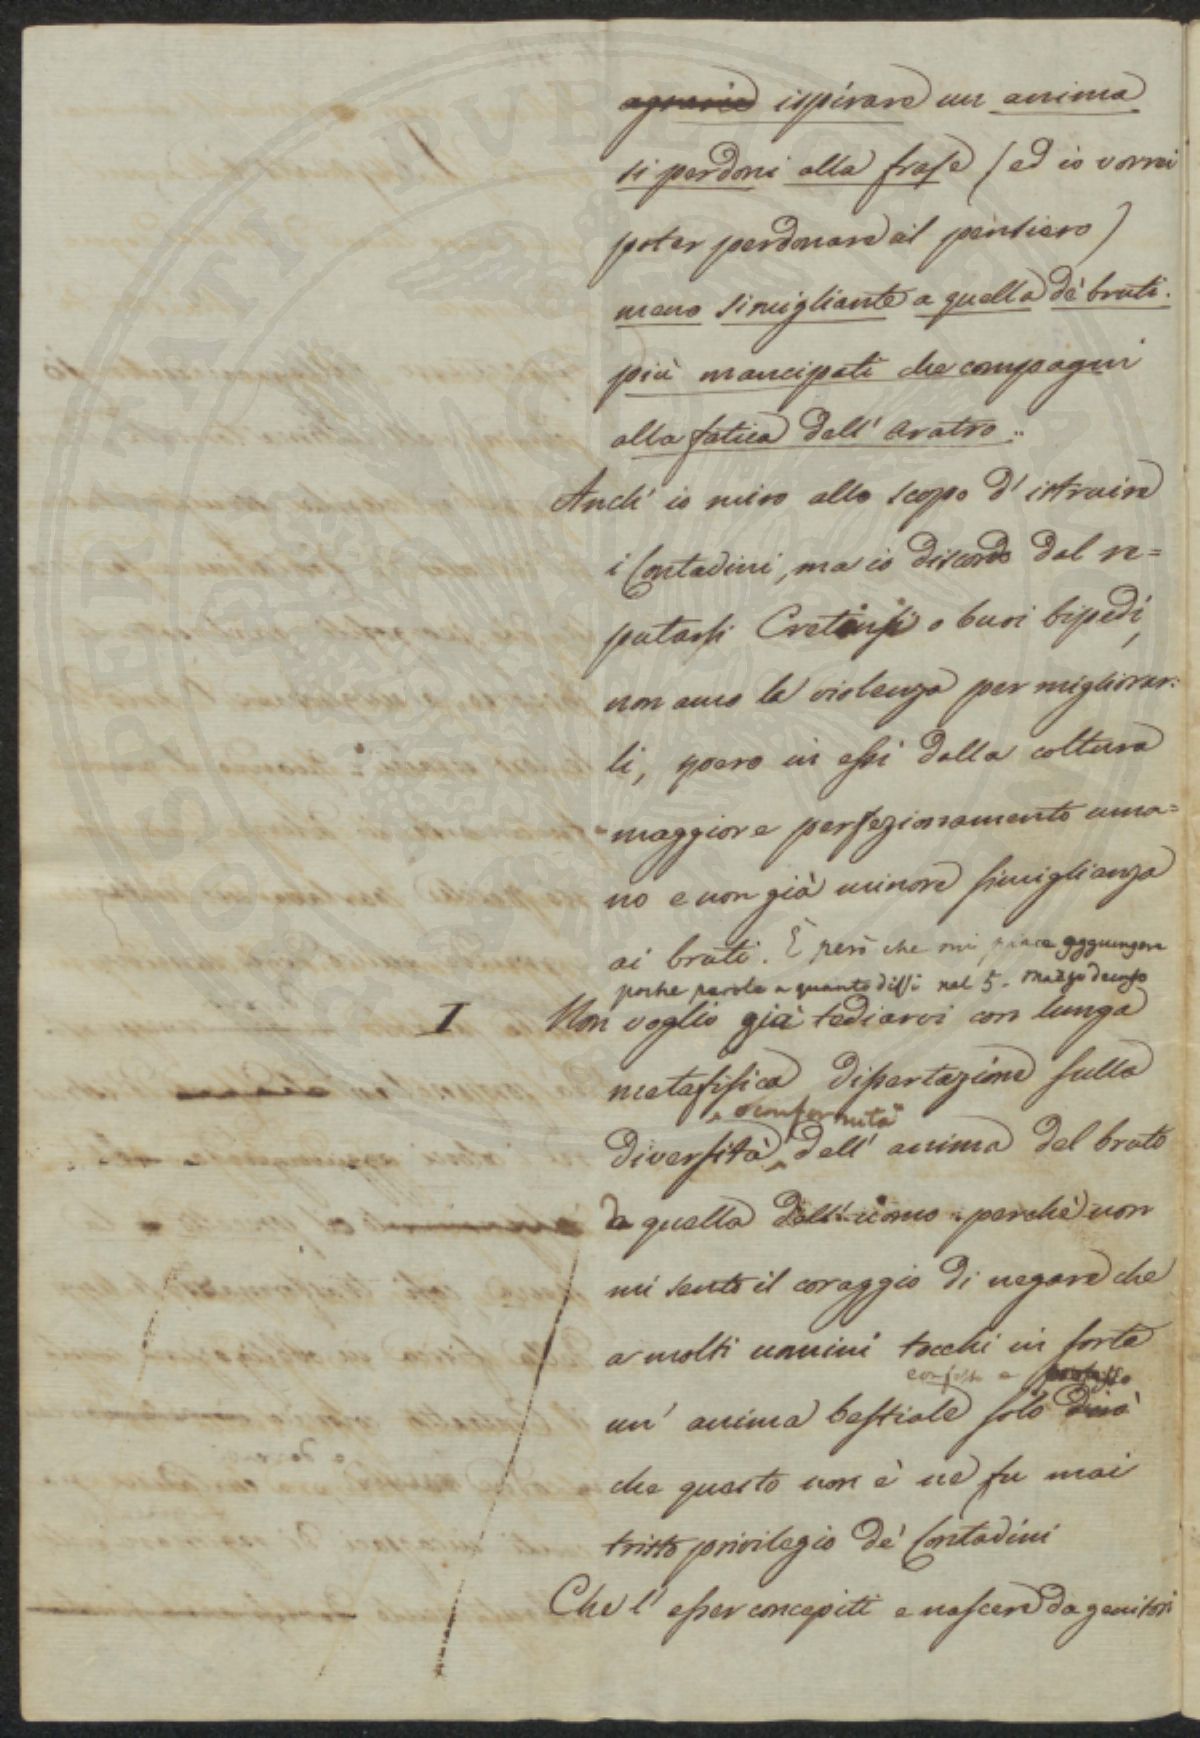 agrarie ispirare un anima
si perdoni alla frase (ed io vorrei
poter perdonare al pensiero)
meno simigliante a quella de' bruti
più mancipati che compagni
alla fatica dell' aratro..
Anch' io miro allo scopo d' istruire
i Contadini, ma io discordo dal re=
putarsi Cretinsi o buri bipedi,
non amo la violenza per migliorar=
li, spero in essi dalla coltura
maggiore perfezionamento uma=
no e non già minore simiglianza
ai bruti. È però che mi piace aggiungere
poche parole a quanto dissi nel 5. Marzo decorso
I Non voglio già tediarvi con lunga
metafisica dissertazione sulla
o conformità
diversità dell' anima del bruto
da quella dell' uomo: perchè non
mi sento il coraggio di negare che
a molti uomini tocchi in sorte
confesso e
un' anima bestiale solo dirò
che questo non è ne fu mai
tristo privilegio de' Contadini
Che l' esser concepiti e nascere da genitori